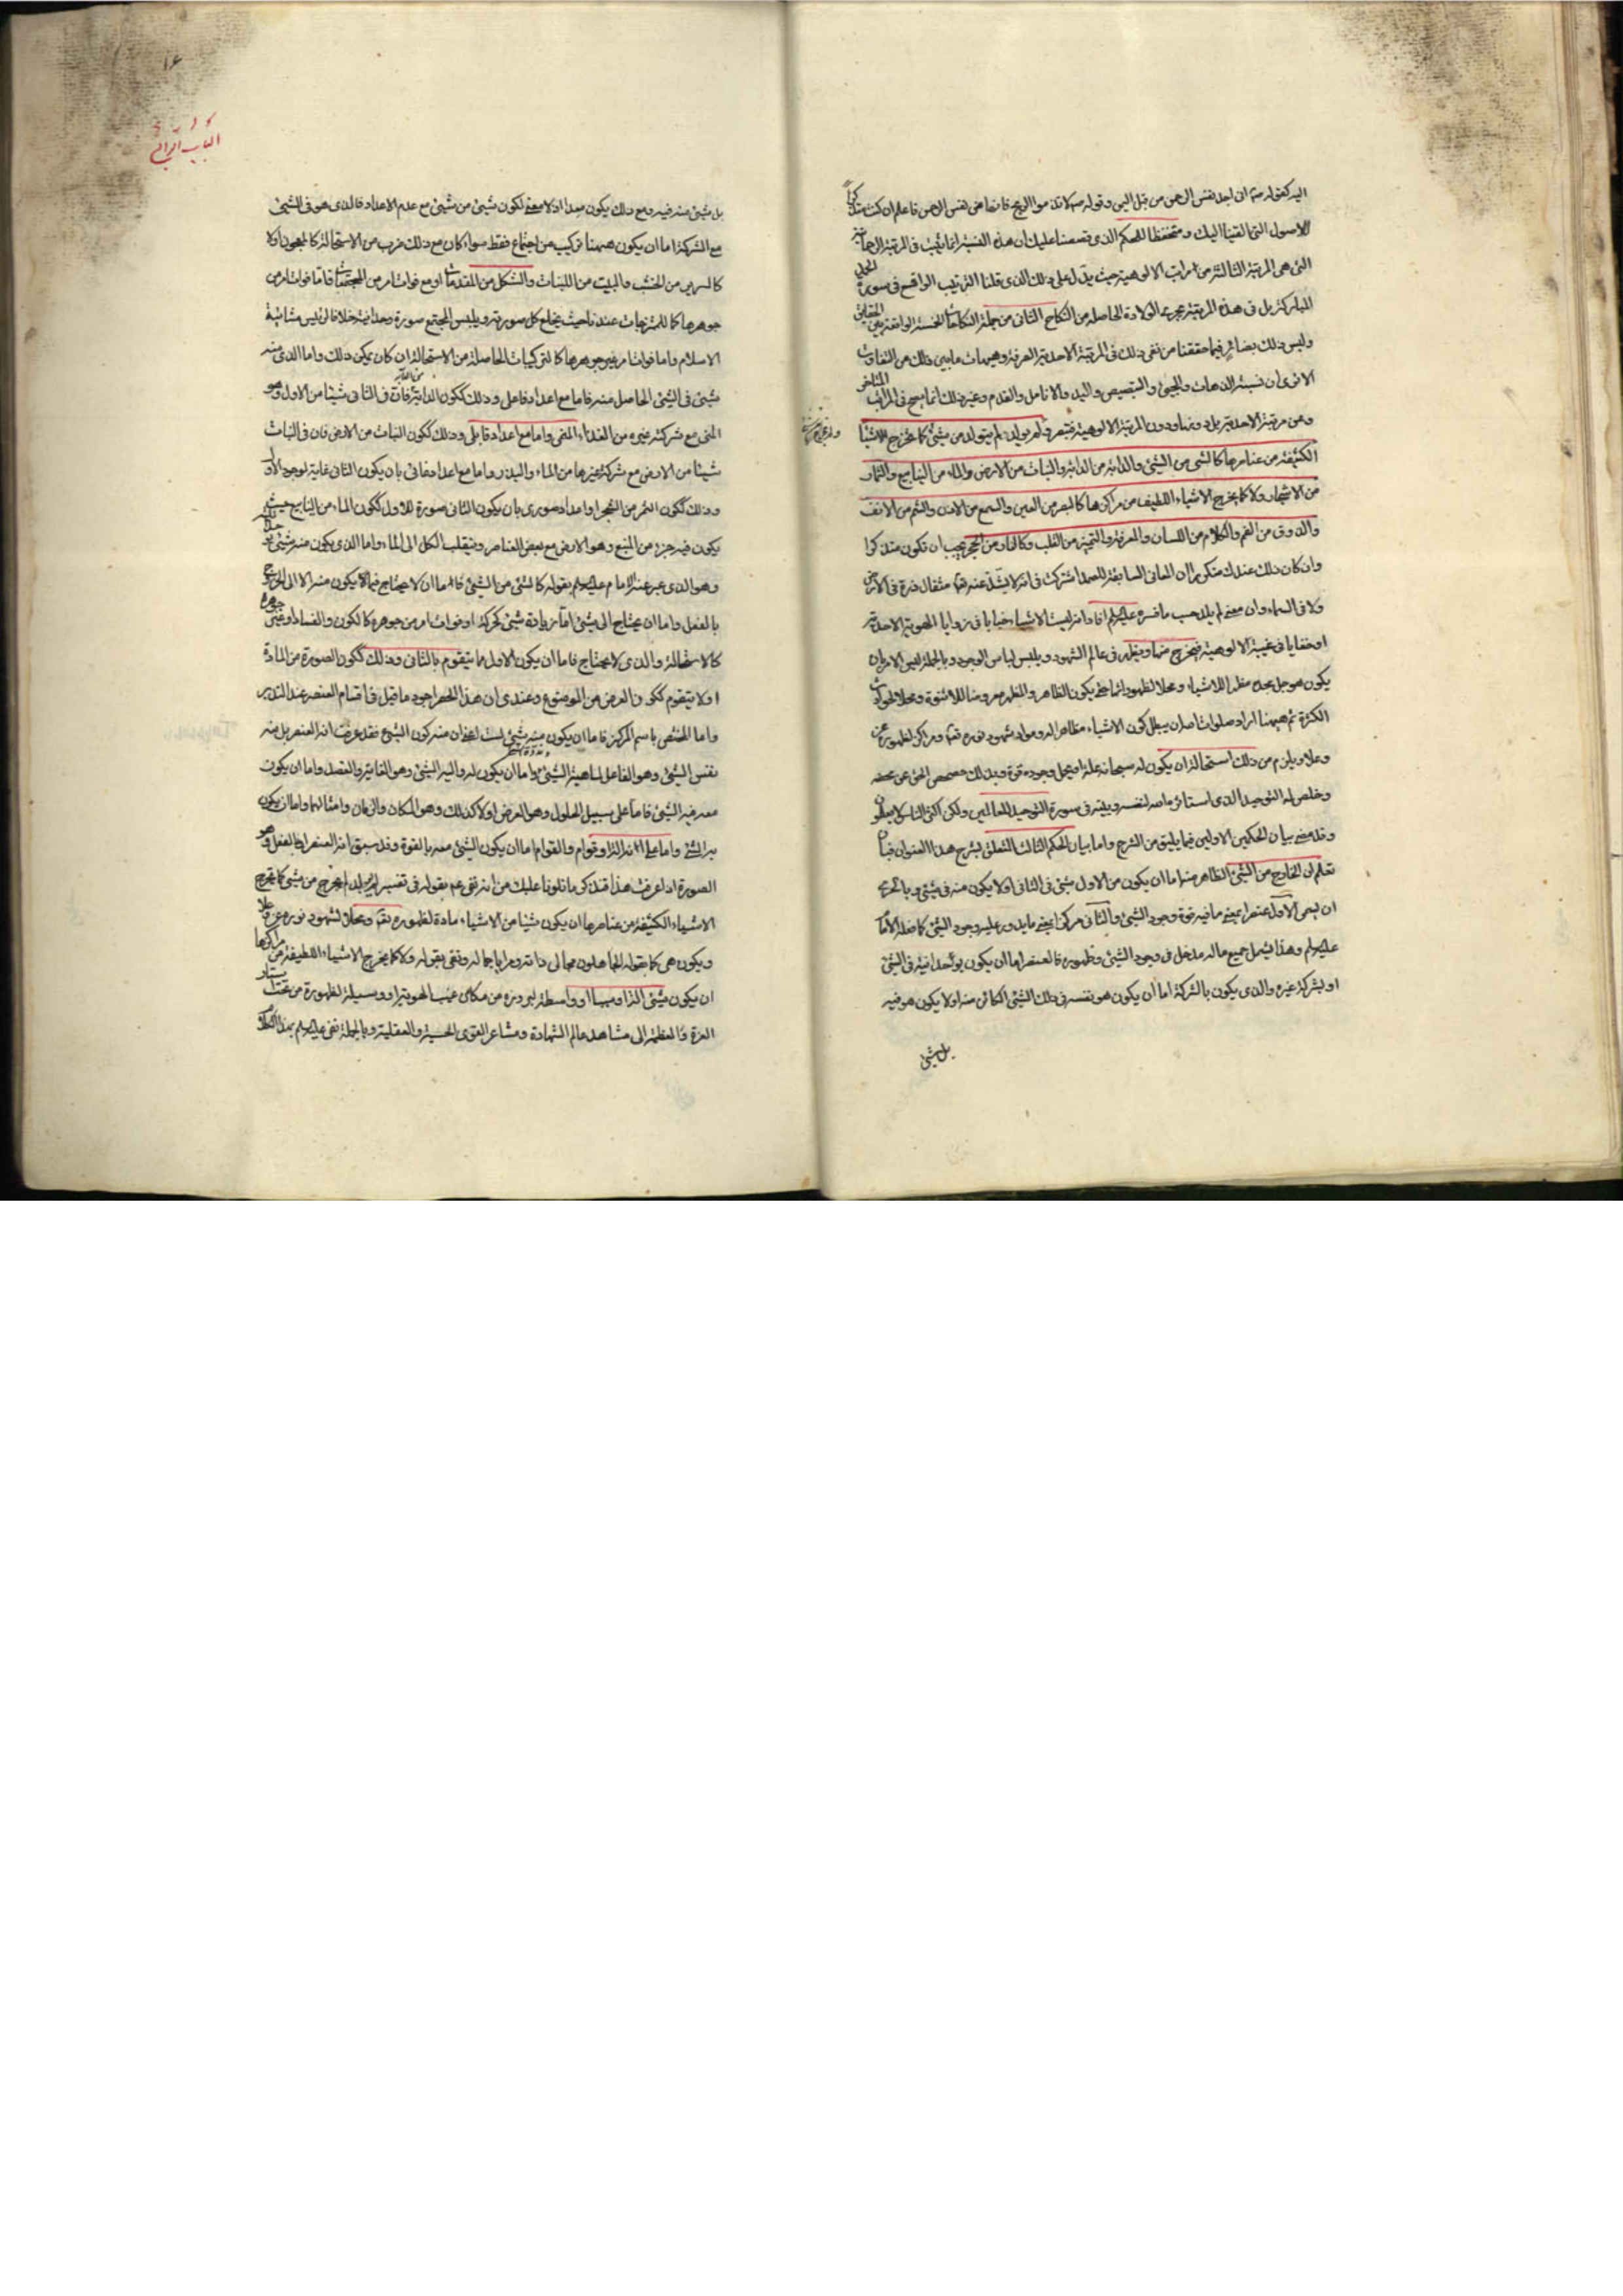 اليه كقوله ص انى لاجد نفس الرحمن من قبل اليمن وقوله ص لا تذموا الريح فانها من نفس الرحمن فاعلم ان كنت متذكرا
للاصول التى القينا اليك ومتحفظا للحكم الذى قصصنا عليك ان هذه النسبة انما ثبت فى المرتبة الرحمانية
التى هى المرتبة الثالثة من مراتب الالوهية حيث يدل على ذلك الذى قلنا الترتيب الواقع فى سورة الحمد
المباركة بل فى هذه المرتبة يجرى الولادة الحاصلة من النكاح الثانى من جملة النكاحات الخمسة الواقعة بين الحقايق
وليس ذلك بضائر فيما حققنا من نفى ذلك فى المرتبة الاحدية الصرفة وهيهات ما بين ذلك من التفاوت
الا ترى ان نسبة الذهاب والمجيئ والتبصيص واليد والانامل والقدم وغير ذلك انما يصح فى المراتب المتاخرة
وعن مرتبة الاحدية بل دونها ودون المرتبة الالوهية فتبصر ولم يولد لم يتولد من شيئ كما يخرج الاشياء
الكثيفة من عناصرها كالشئ من الشيئ والدابة من الدابة والنبات من الارض والماء من الينابيع والثمار
من الاشجار ولا كما يخرج الاشياء اللطيف من مراكزها كالبصر من العين والسمع من الاذن والشم من الانف
والذوق من الفم والكلام من اللسان والمعرفة والتميز من القلب وكالنار من الحجر يجب ان تكون متذكرا
وان كان ذلك عندك متكررا ان المعانى السابقة للصمد اشتركت فى انه لا يشذ عنه تعا مثقال ذرة فى الارض
ولا فى السماء وان معنى لم يلد حسب ما فسره عليه السلام افاد انه ليست الاشياء خبايا فى زوايا الهوية الاحدية
او خفايا فى غيبة الالوهية فيخرج منها ويظهر فى عالم الشهود ويلبس لباس الوجود وبالجملة ليس الامر بان
يكون هو جل مجده مظهرا للاشياء ومحلا لظهور انما حتى يكون الظاهر والمظهر معروضا للاثنوة ومحلا لحوادث
الكثرة ثم هيهنا اراد صلوات الله ان يبطل كون الاشياء مظاهر له ومواد شهود نوره تعا ومراكز لظهوره عز
وعلا ويلزم من ذلك استحالة ان يكون له سبحانه علة او يحمل وجوده قوة وبذلك حصحص الحق عن محضه
وخلص له التوحيد الذى استاثره الله لنفسه وبينه فى سورة التوحيد للعالمين ولكن اكثر الناس لا يعلمون
وقد مضى بيان الحكمين الاولين فيما يليق من الشرح واما بيان الحكم الثالث المتعلق بشرح هذا العنوان فبان
تعلم ان الخارج من الشيئ الظاهر منه اما ان يكون من الاول شئ فى الثانى او لا يكون منه فى شيئ وبالحرى
ان يسمى الاول عنصرا يعنى ما فيه قوة وجود الشيئ والثانى مركزا يعنى ما يدور عليه وجود الشيئ كما فعله الامام
عليه السلام وهذا يشمل جميع ما له مدخل فى وجود الشيئ وظهوره فالعنصر اما ان يكون بوحدانية فى الشيئ
او بشركة غيره والذى يكون بالشركة اما ان يكون هو نفسه فى ذلك الشيئ الكائن منه او لا يكون هو فيه
بل شئ
١٤
الباب الرابع
بل شئ منه فيه ومع ذلك يكون معدا اذ لا معنى لكون شيئ من شيئ مع عدم الاعداد فالذى هو فى الشيئ
مع الشركة اما ان يكون هيهنا تركيب من اجتماع فقط سواء كان مع ذلك ضرب من الاستحالة كالمعجون او لا
كالسرير من الخشب والبيت من اللبنات والشكل من المقدمات او مع فوات امر من المجتمعات فاما فوات امر من
جوهرها كالممتزجات عندنا حيث يخلع كل صورته ويلبس المجتمع صورة وحدانية خلافا لرئيس مشائية
الاسلام واما فوات امر غير جوهرها كالتركيبات الحاصلة من الاستحالة ان كان يمكن ذلك واما الذى منه
شئ فى الشيئ الحاصل منه فاما مع اعداد فاعلى وذلك ككون الدابة من الدابة فان فى الثانى شيئا من الاول وهو
المنى مع شركة غيره من الغذاء المنى واما مع اعداد قابلى وذلك ككون النبات من الارض فان فى النبات
شيئا من الارض مع شركة غيرها من الماء والبذر واما مع اعداد غائى بان يكون الثانى غاية لوجود الاول
وذلك ككون الثمر من الشجر او اعداد صورى بان يكون الثانى صورة للاول ككون الماء من الينابيع حيث
يكون فيه جزء من المنبع وهو الارض مع بعض العناصر وينقلب الكل الى الماء واما الذى يكون منه شئ
وهو الذى عبر عنه الامام عليه السلام بقوله كالشئ من الشيئ فاما ان لا يحتاج فيما لا يكون منه الا الى الخروج
بالفعل واما ان يحتاج الى شيئ اما زيادة شئ كحركة او فوات امر من جوهره كالكون والفساد او غير جوهره
كالاستحالة والذى لا يحتاج فاما ان يكون الاول ما يتقوم بالثانى وذلك ككون الصورة من المادة
او لا يتقوم ككون العرض من الموضوع وعندى ان هذا الحصر اجود ما قيل فى اقسام العنصر عند التدبر
واما المختص باسم المركز فاما ان يكون منه شئ لست اعنى ان منه كون الشيئ فقد عرفت انه العنصر بل منه
نفس الشيئ وهو الفاعل لماهية الشيئ واما ان يكون له واليه الشيئ وهو الغاية والقصد واما ان يكون
معه فيه الشيئ فاما على سبيل الحلول وهو العرض او لا كذلك وهو المكان والزمان وامثالهما واما ان يكون
به الشئ واما على انه الة او قوام والقوام اما ان يكون الشيئ معه بالقوة وقد سبق انه العنصر او بالفعل وهو
الصورة اذا عرفت هذا فتذكر ما تلونا عليك من انه نفى عم بقوله فى تفسير لم يولد لم يخرج من شئ كما يخرج
الاشياء الكثيفة من عناصرها ان يكون شيئا من الاشياء مادة لظهوره تعا ومحلا لشهود نوره عز وعلا
ويكون هى كما يقوله الجاهلون مجالى ذاته ومرايا جماله ونفى بقوله ولا كما يخرج الاشياء اللطيفة من مراكزها
ان يكون شئ الة او سببا او واسطة لبروزه من مكامن غيب الهوية او وسيلة لظهوره من تحت استار
العزة والعظمة الى مشاهد عالم الشهادة ومشاعر القوى الحسية والعقلية وبالجملة نفى عليه السلام بهذا الكلام